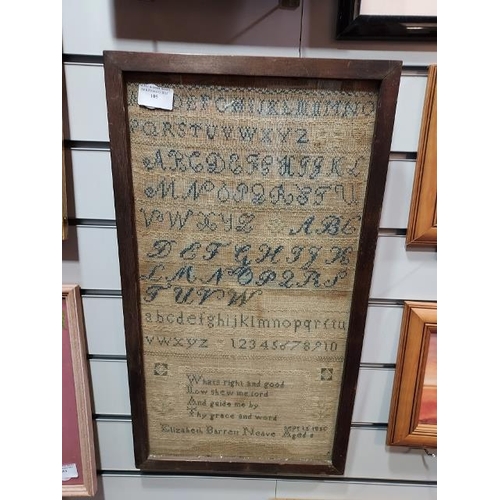 DEFGHIJKLMNO
PQRSTUVWXYZ
ABCDEFGHIJKL
MNOPQRSTU
VWXYZ ABC
DEFGHIJK
LMNOPQRS
TUVW
abcdefghijklmnopqrstu
vwxyz 12345678910
Whats right and good
now shew me lord
And guide me by
Thy grace and word
Elizabeth Neave Aged